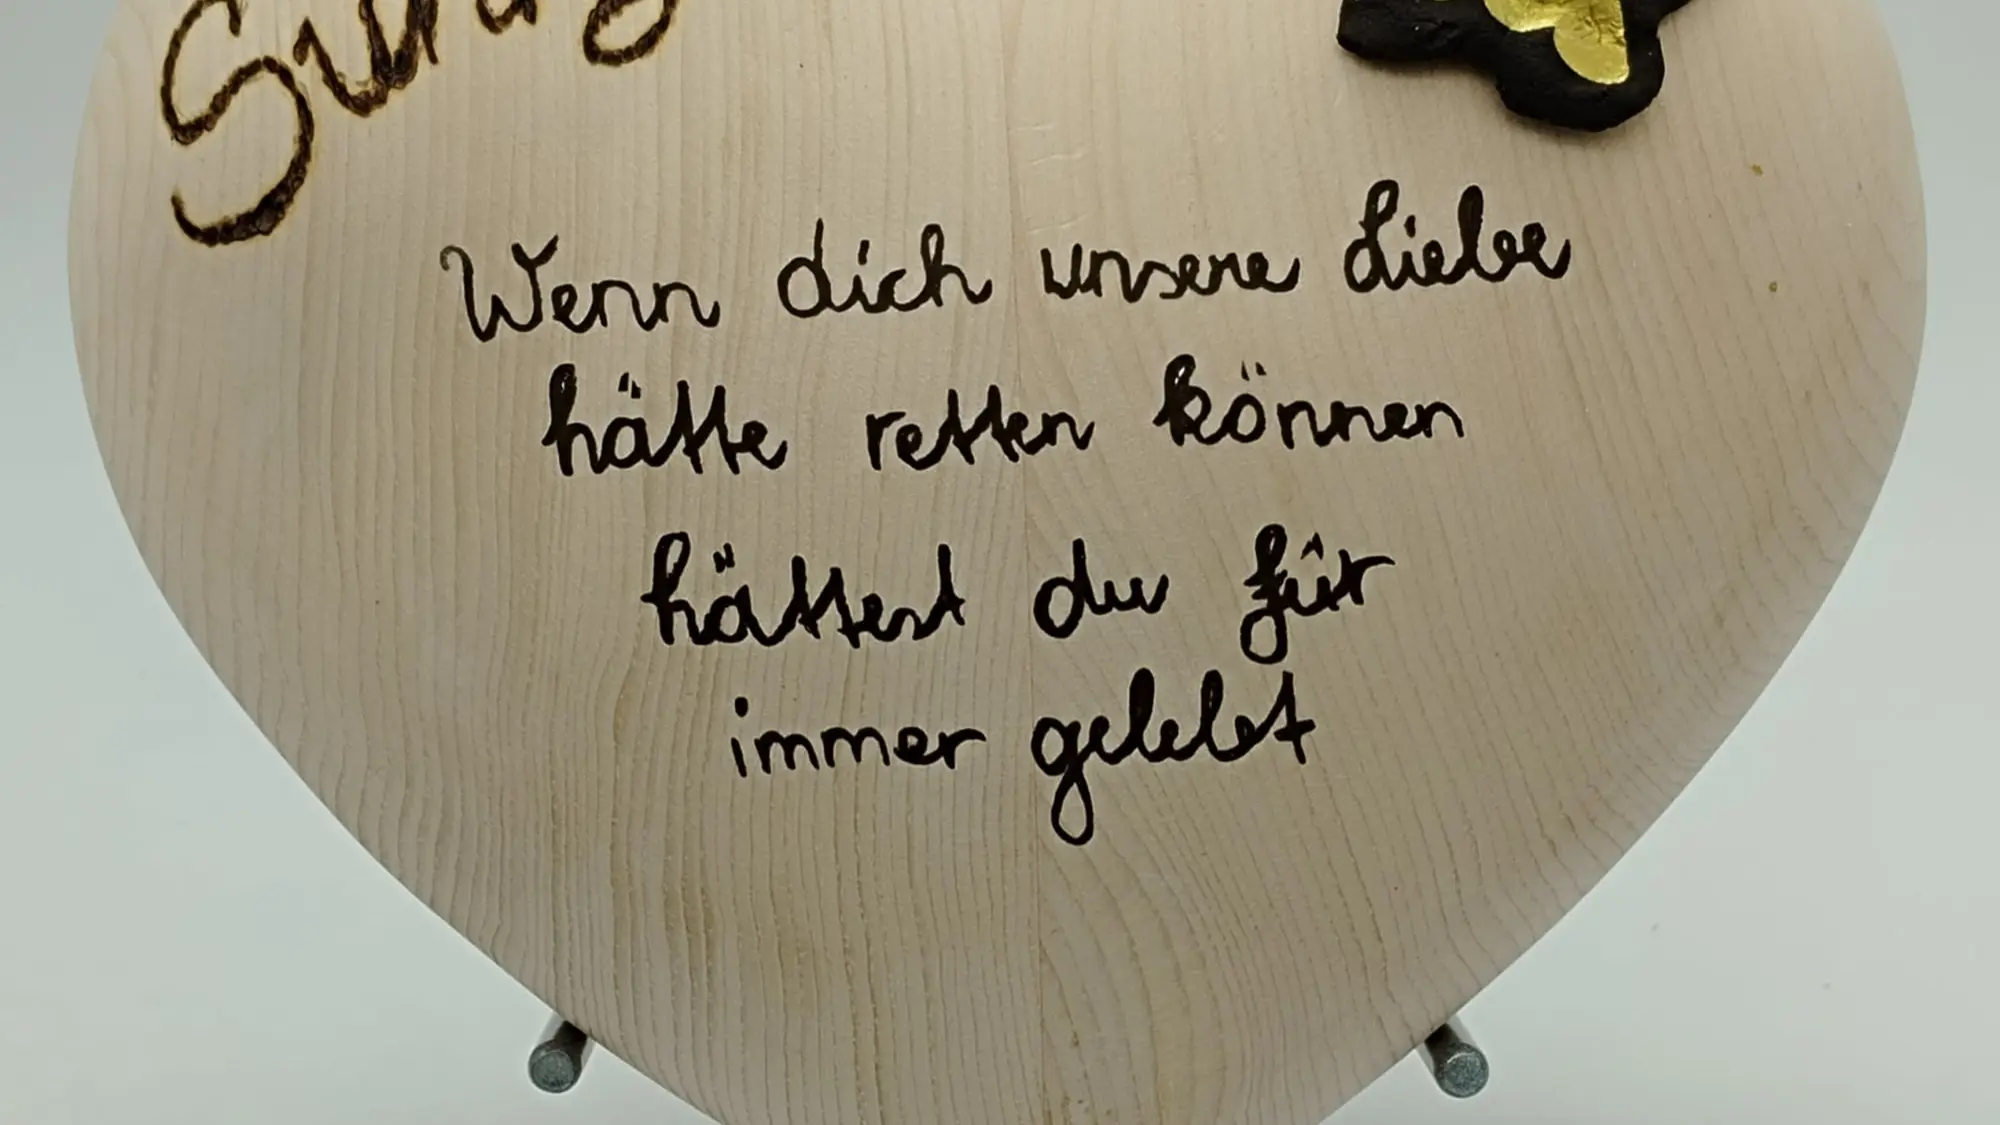 Wenn dich unsere Liebe
hätte retten können
hättest du für
immer gelebt